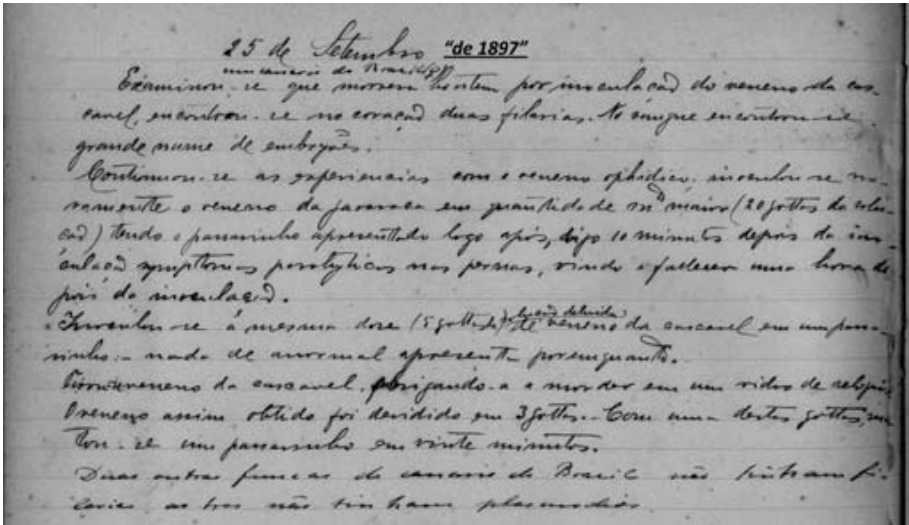 25 de Setembro "de 1897"
um canario do Brazil
Examinou-se que morrera hontem por inoculação do veneno da cas-
cavel, encontrou-se no coração duas filarias. No sangue encontrou-se
grande nume de embryões.
Continuou-se as experiencias com o veneno ophidico. inoculou-se no-
vamente o veneno da jararaca em quantidade mto maior (20 gottas da solu-
ção) tendo o passarinho apresentado logo após, digo 10 minutos depois da ino-
culação symptomas paralyticos nas pernas, vindo a fallecer uma hora de-
pois da inoculação.
Inoculou-se a mesma dose (5 gottas solução diluida) de veneno da cascavel em um passa-
rinho: nada de anormal apresenta por emquanto.
veneno da cascavel, obrigando-a a morder em um vidro de relogio.
O veneno assim obtido foi devidido em 3 gottas. Com uma destas gottas, ma-
tou-se um passarinho em vinte minutos.
Duas outras de canario do Brazil não tinham fi-
larias as tres não tinham plasmodios